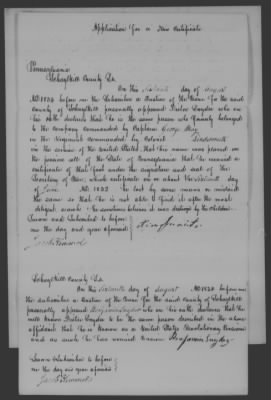 Application For a New Certificate
Pennsylvania
Schuylkill County Ss.
On this Sixteenth day of August
AD. 1834 before me the Subscriber a Justice of the Peace for the said
county of Schuylkill personally appeared Peter Snyder who on
his oath declares that he is the same person who formerly belonged
to the company commanded by Captain George
in the Regiment commanded by Colonel
in the service of the United States that his name was placed on
the pension roll of the State of Pennsylvania that he received a
certificate of that fact under the signature and seal of the
Secretary of War, which certificate on or about the
of June AD. 1832 he lost by some means or mislaid
the same so that he is not able to find it after the most
diligent search
Sworn and Subscribed to before
me the day and year aforesaid
Jacob
Schuylkill County Ss.
On this Sixteenth day of August AD. 1834 before me
the subscriber a Justice of the Peace for the County of Schuylkill
personally appeared Benjamin Snyder who on his oath declares that he
well knows Peter Snyder to be the same person described in the above
affidavit that he is known as a United States Revolutionary Pensioner
and as such he has always known Benjamin Snyder
Sworn & Subscribed to before
me the day and year aforesaid
Jacob